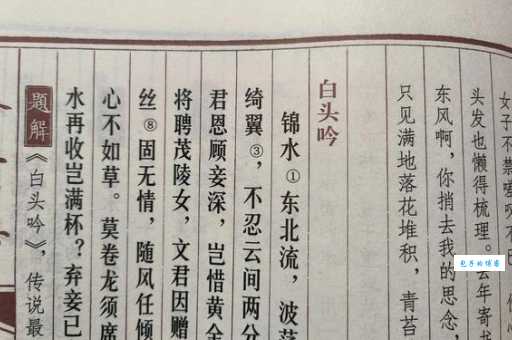 女子不禁嗟叹不已
头发也懒得梳理。去年寄
东风啊，你捎去我的思念，
只见满地落花堆积，青苔
白头吟
锦水①东北流，波荡
绮翼③，不忍云间两分
君恩顾妾深，岂惜黄金
将聘茂陵女，文君因赠
丝⑧固无情，随风任倾
心不如草。莫卷龙须席
水再收岂满杯？弃妾已
题解《白头吟》，传说最